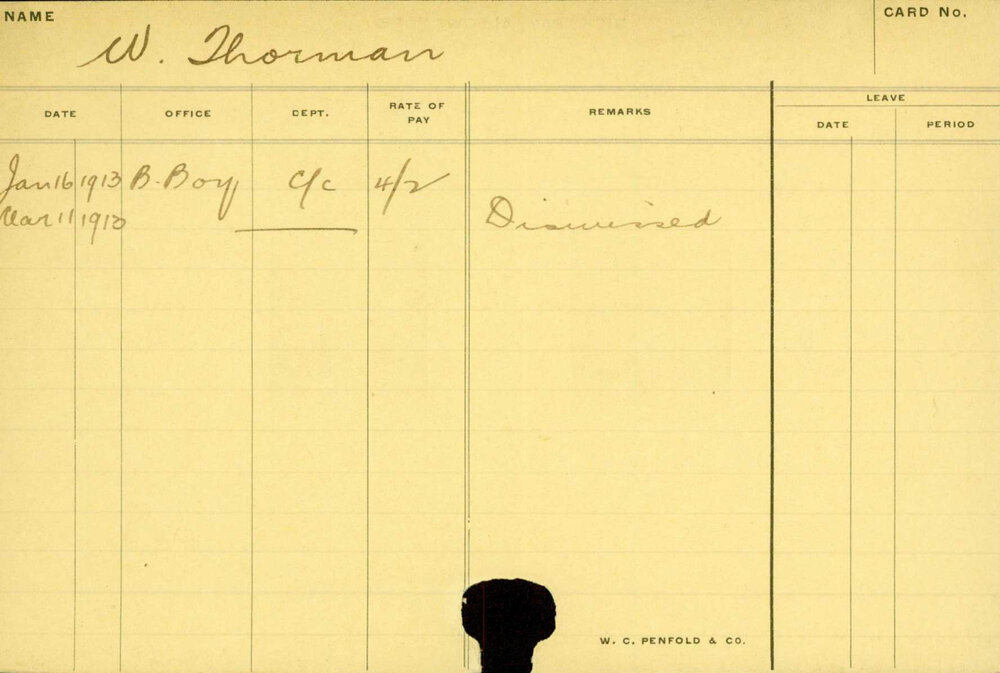 NAME
CARD No.
W. Thorman
DATE OFFICE DEPT. RATE OF PAY REMARKS LEAVE
DATE PERIOD
Jan 16 1913 B. Boy C/c 4/2
Mar 11 1913 Dismissed
W. C. PENFOLD & CO.